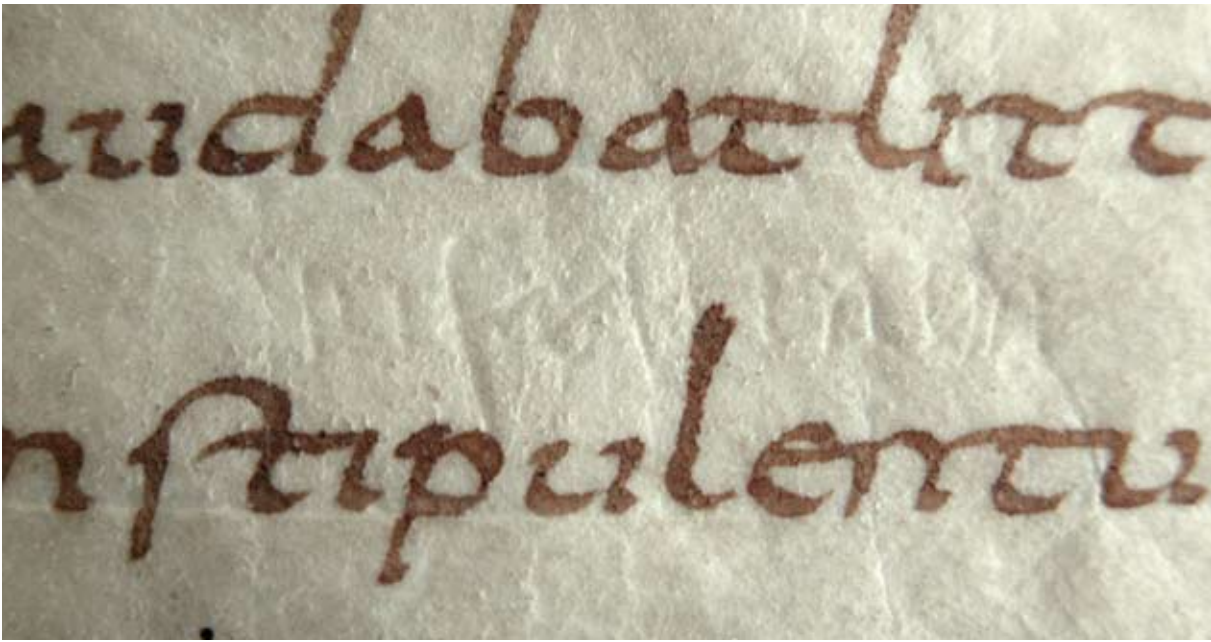 audabat litt
n stipulentu